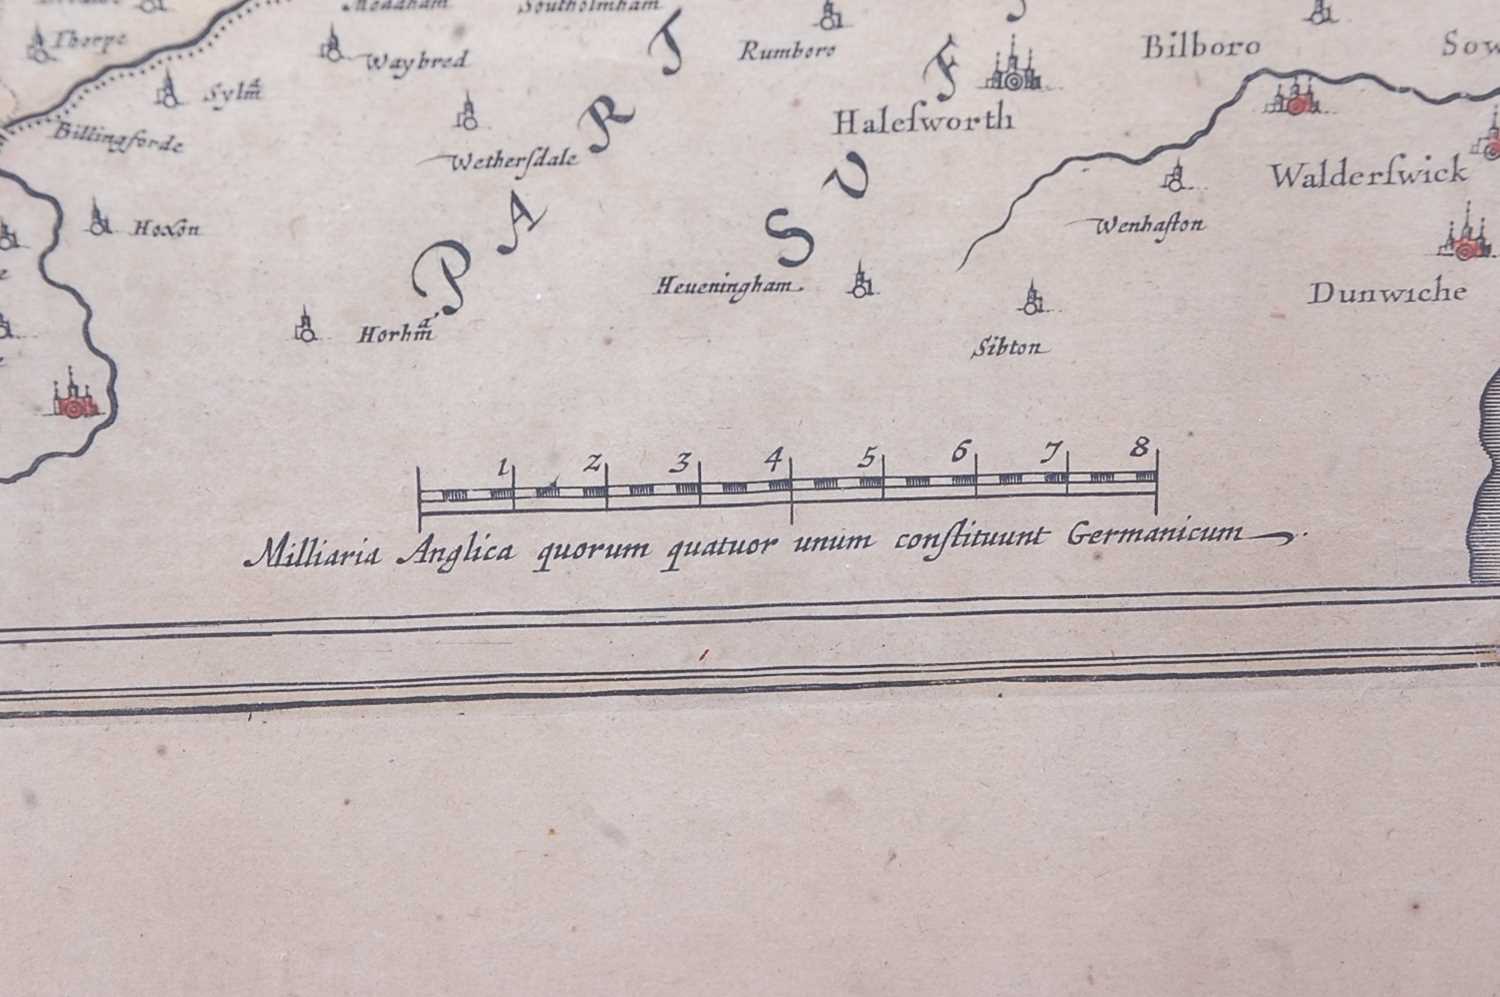 Southolmham
Thorpe
Waybred
Rumboro
Bilboro
Sylm̃
Haleſworth
Billingforde
Wetherſdale
Walderſwick
Hoxon
Wenhaſton
PART
SVF
Heueningham.
Dunwiche
Horhm̃
Sibton
1 2 3 4 5 6 7 8
Milliaria Anglica quorum quatuor unum conſtituunt Germanicum